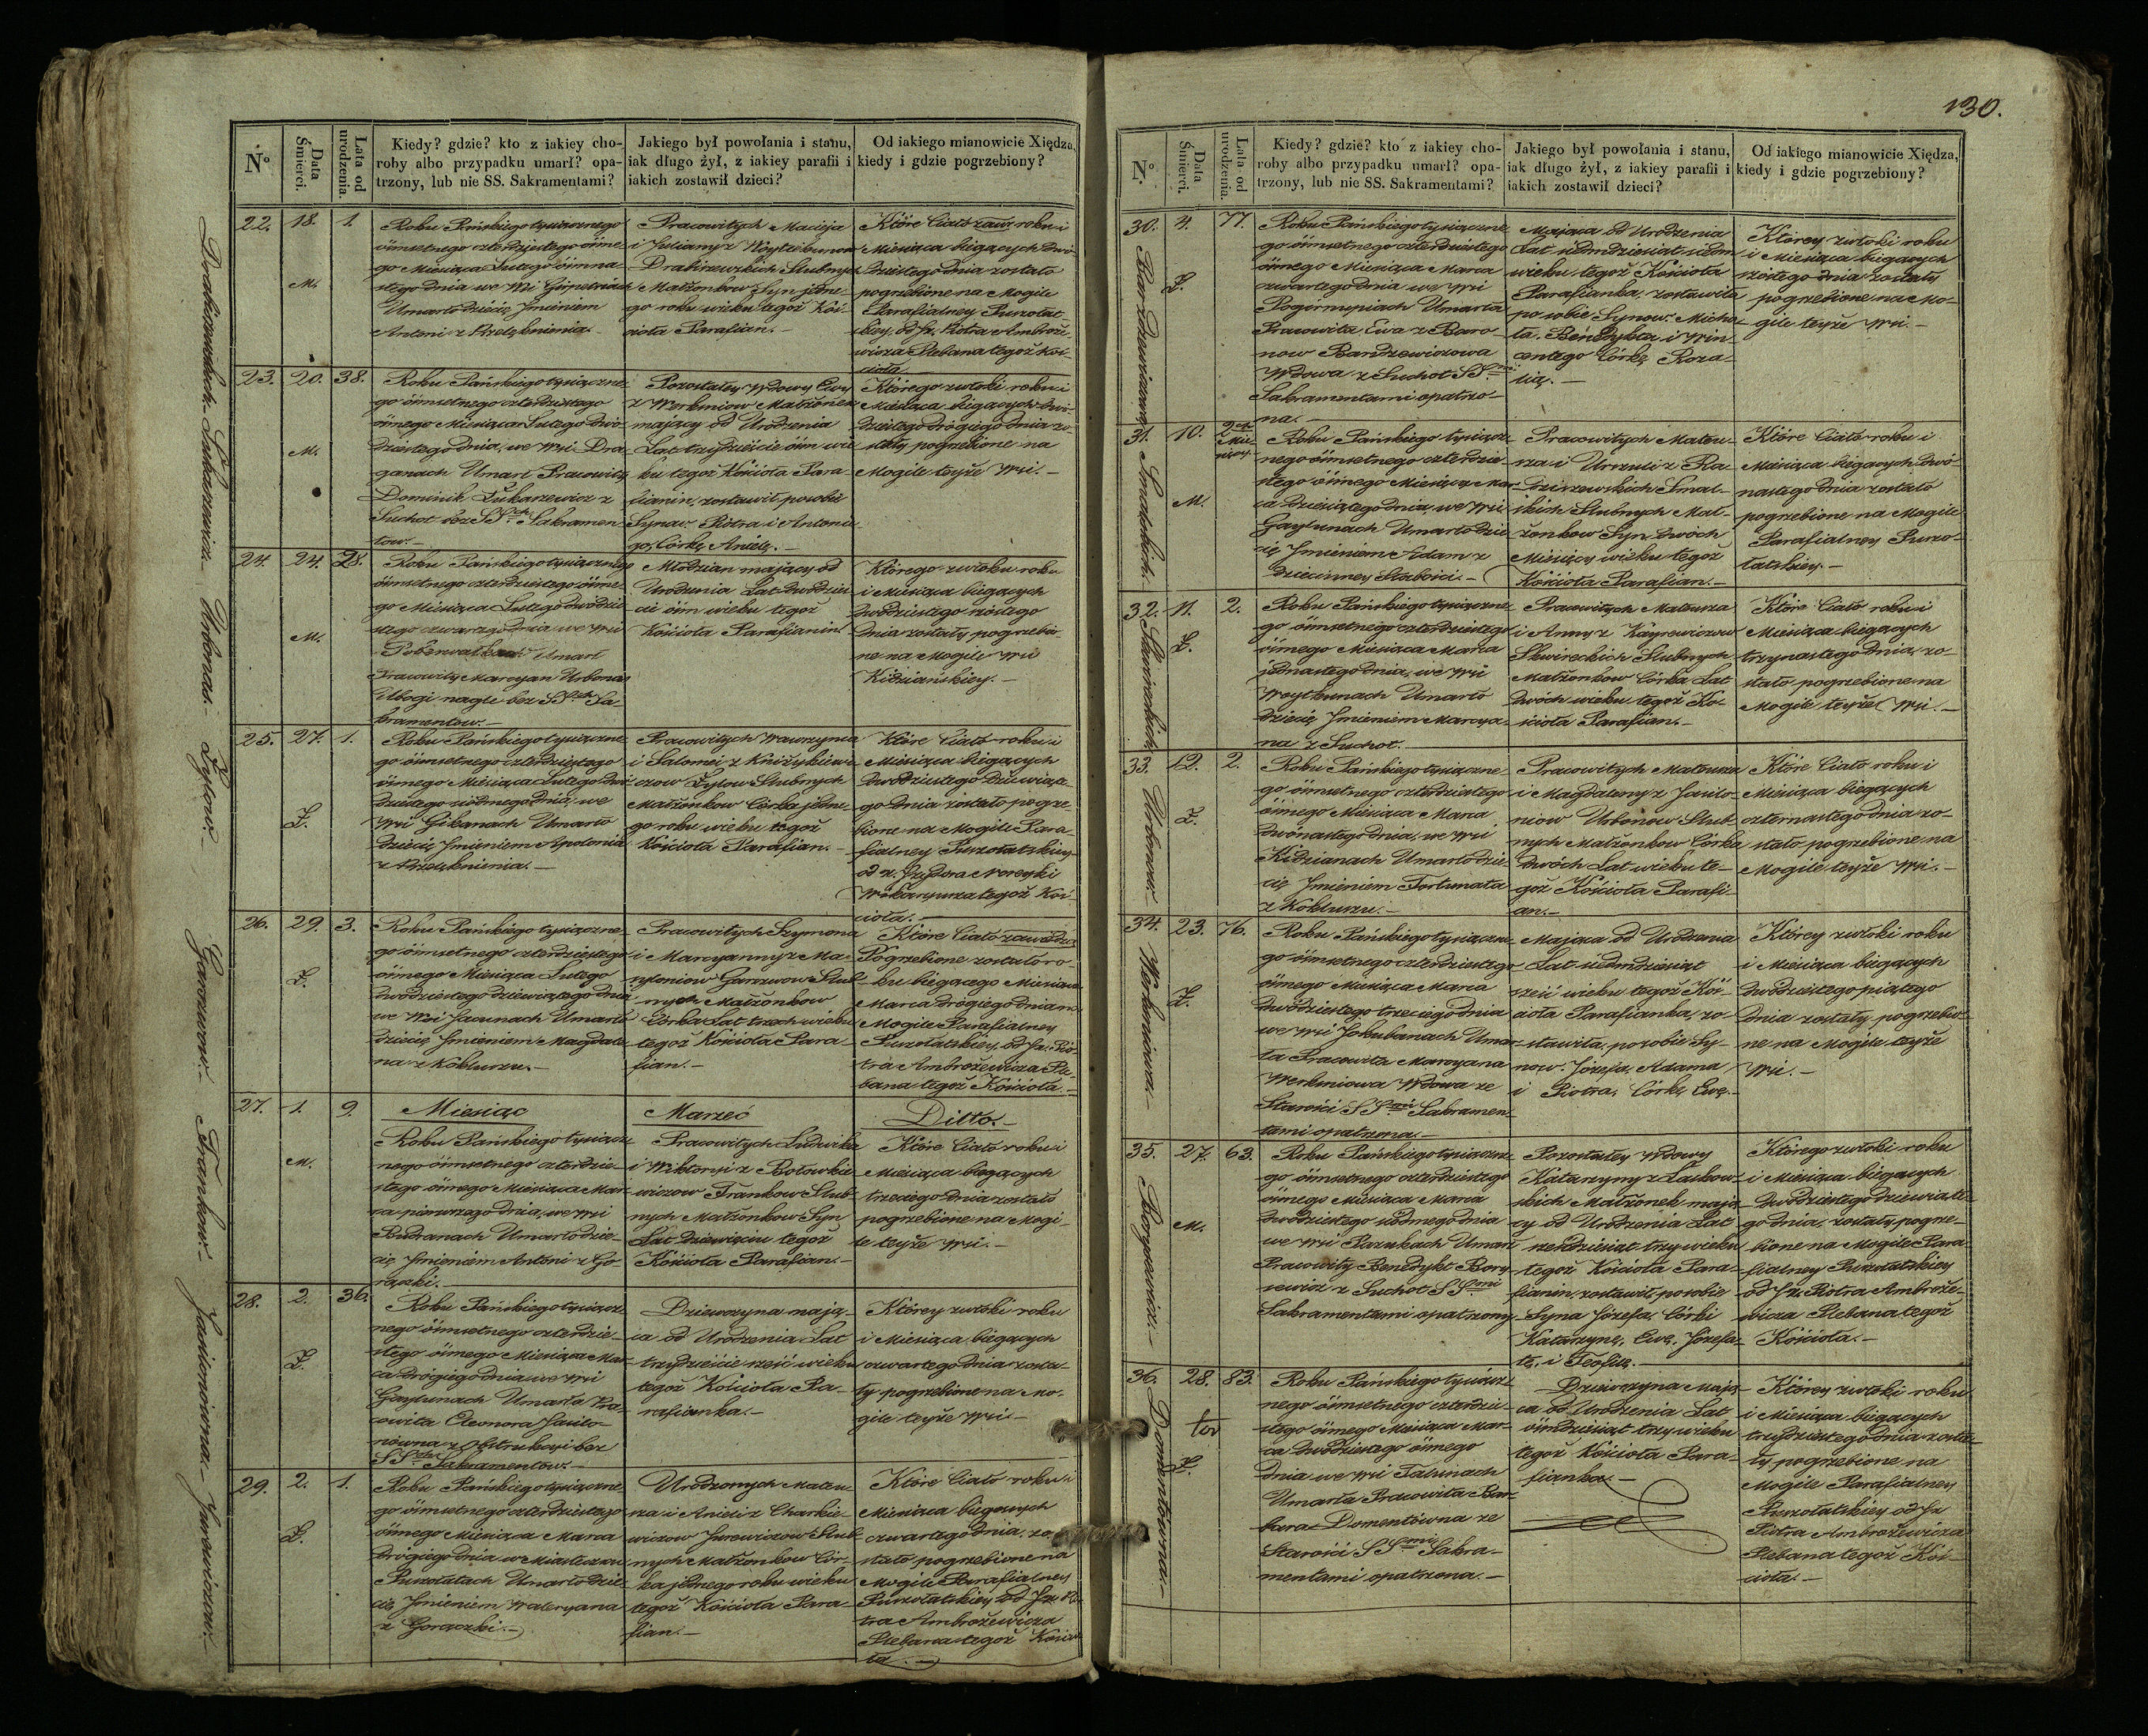 130.
Nº
Data Śmierci.
Lata od urodzenia.
Kiedy? gdzie? kto z iakiey cho-
roby albo przypadku umarł? opa-
trzony, lub nie SS. Sakramentami?
Jakiego był powołania i stanu,
iak długo żył, z iakiey parafii i
iakich zostawił dzieci?
Od iakiego mianowicie Xiędza,
kiedy i gdzie pogrzebiony?
22. 18. 1.
M.
Roku Pańskiego tysiącznego
ośmsetnego czterdziestego ósme-
go Miesiąca Lutego ósmna-
stego dnia we Wsi
Umarło dziecię Jmieniem
Antoni z Przelęknienia.-
Pracowitych Macieja
i Julianny z
Ślubnych
Małżonkow Syn jedne-
go roku wieku tegoż Koś-
cioła Parafian.-
Które Ciało roku i
Miesiąca biegących dwó-
dziestego dnia zostało
pogrzebione na Mogile
Parafialney Puszołat-
skiey, od Jx. Piotra Ambroże-
wicza Plebana tegoż Koś-
cioła.-
23. 20. 38.
M.
Roku Pańskiego tysiączne-
go ośmsetnego czterdziestego
ósmego Miesiąca Lutego dwó-
dziestego dnia, we Wsi Dra-
ganach Umarł Pracowity
Dominik Łukaszewicz z
Suchot bez SSch Sakramen-
tow.-
Pozostałey Wdowy Ewy
z Werkniow Małżonek
mający od Urodzenia
Lat trzydzieście ośm wie-
ku tegoż Kościoła Para-
fianin, zostawił posobie
Synow: Piotra i Antonie-
go, Córkę Anielę.-
Którego zwłoki roku i
Miesiąca biegących dwó-
dziestego drógiego dnia zo-
stały pogrzebione na
Mogile teyże Wsi.-
24. 24. 28.
M.
Roku Pańskiego tysiącznego
ośmsetnego czterdziestego ósme-
go Miesiąca Lutego dwódzie-
stego czwartego dnia we Wsi
Umarł
Pracowity Marcyan Urbonas
Ubogi nagle bez SSch Sa-
kramentow.-
Młodzian mający od
Urodzenia Lat dwódzie-
cie ośm wieku tegoż
Kościoła Parafianin.
Którego zwłoki roku
i Miesiąca biegących
dwódziestego szóstego
dnia zostały pogrzebio-
ne na Mogile Wsi
Kidziańskiey.-
25. 27. 1.
Ż.
Roku Pańskiego tysiączne-
go ośmsetnego czterdziestego
ósmego Miesiąca Lutego dwó-
dziestego siódmego dnia, we
Wsi Gikanach Umarło
dziecię Jmieniem Apolonia
z Przelęknienia.-
Pracowitych Wawrzynca
i Salomei z
Żylow Ślubnych
Małżonkow Córka jedne-
go roku wieku tegoż
Kościoła Parafian.-
Które Ciało roku i
Miesiąca biegących
dwódziestego dziewiąte-
go dnia zostało pogrze-
bione na Mogile Para-
fialney Puszołatskiey
od x. Jzydora Noreyki
Wikaryusza tegoż Koś-
cioła.-
26. 29. 3.
Ż.
Roku Pańskiego tysiączne-
go ośmsetnego czterdziestego
ósmego Miesiąca Lutego
dwódziestego dziewiątego dnia
we Wsi Jacunach Umarło
dziecię Jmieniem Magdale-
na z Kokluszu.-
Pracowitych Szymona
i Marcyanny z Ma-
Garszwow Ślub-
nych Małżonkow
Córka Lat trzech wieku
tegoż Kościoła Para-
fian.-
Które Ciało
Pogrzebione zostało ro-
ku biegącego Miesiąca
Marca drógiego dnia na
Mogile Parafialney
Puszołatskiey, od Jx. Pio-
tra Ambrożewicza Ple-
bana tegoż Kościoła.-
Miesiąc Marzec Ditto.-
27. 1. 9.
M.
Roku Pańskiego tysiącz-
nego ośmsetnego czterdzie-
stego ósmego Miesiąca Mar-
ca pierwszego dnia, we Wsi
Budranach Umarło dzie-
cię Jmieniem Antoni z Go-
rączki.-
Pracowitych Ludwika
i Wiktoryi z
Trankow Ślub-
nych Małżonkow Syn
Lat dziewięciu tegoż
Kościoła Parafian.-
Które Ciało roku i
Miesiąca biegących
trzeciego dnia zostało
pogrzebione na Mogi-
le teyże Wsi.-
28. 2. 36.
Ż.
Roku Pańskiego tysiącz-
nego ośmsetnego czterdzie-
stego ósmego Miesiąca Mar-
ca drógiego dnia we Wsi
Gaylunach Umarła Pra-
cowita Eleonora Jasilo-
niowna z Obstrukcyi bez
SSch Sakramentow.-
Dziewczyna mają-
ca od Urodzenia Lat
trzydzieście sześć wieku
tegoż Kościoła Pa-
rafianka.-
Którey zwłoki roku
i Miesiąca biegących
czwartego dnia zosta-
ły pogrzebione na Mo-
gile teyże Wsi.-
29. 2. 1.
Ż.
Roku Pańskiego tysiączne-
go ośmsetnego czterdziestego
ósmego Miesiąca Marca
drógiego dnia w Miasteczku
Puszołatach Umarło dzie-
cię Jmieniem Waleryana
z Gorączki.-
Urodzonych Mateu-
sza i Anieli z Charkie-
wiczow Jurewiczow Ślub-
nych Małżonkow Cór-
ka jednego roku wieku
tegoż Kościoła Para-
fian.-
Które Ciało roku i
Miesiąca biegących
czwartego dnia, zo-
stało pogrzebione na
Mogile Parafialney
Puszołatskiey od Jx. Pio-
tra Ambrożewicza
Plebana tegoż Kościo-
ła.-
Łukaszewicz.- Urbonas.- Żylow.- Garszwow.- Trankow.- Jasiloniowna.- Jurewiczow.-
Nº
Data Śmierci.
Lata od urodzenia.
Kiedy? gdzie? kto z iakiey cho-
roby albo przypadku umarł? opa-
trzony, lub nie SS. Sakramentami?
Jakiego był powołania i stanu,
iak długo żył, z iakiey parafii i
iakich zostawił dzieci?
Od iakiego mianowicie Xiędza,
kiedy i gdzie pogrzebiony?
30. 4. 77.
Ż.
Roku Pańskiego tysiączne-
go ośmsetnego czterdziestego
ósmego Miesiąca Marca
czwartego dnia we Wsi
Umarła
Pracowita Ewa z Baro-
now Bardzewiczowa
Wdowa z Suchot SSmi
Sakramentami opatrzo-
na.-
Mająca od Urodzenia
Lat siedmdziesiąt siedm
wieku tegoż Kościoła
Parafianka, zostawiła
po sobie Synow: Micha-
ła, Benedykta i Win-
centego Córkę Roza-
lią.-
Którey zwłoki roku
i Miesiąca biegących
szóstego dnia zostały
pogrzebione na Mo-
gile teyże Wsi.-
31. 10. 2ch Miesięcy
M.
Roku Pańskiego tysiącz-
nego ośmsetnego czterdzie-
stego ósmego Miesiąca Mar-
ca dziesiątego dnia, we Wsi
Gaylunach Umarło dzie-
cię Jmieniem Adam z
dziecinney Słabości.-
Pracowitych Mateu-
sza i Urszuli z Ra-
dziszewskich Smal-
skich Ślubnych Mał-
żonkow Syn dwóch
Miesięcy wieku tegoż
Kościoła Parafian.-
Które Ciało roku i
Miesiąca biegących dwó-
nastego dnia zostało
pogrzebione na Mogile
Parafialney Puszo-
łatskiey.-
32. 11. 2.
Ż.
Roku Pańskiego tysiączne-
go ośmsetnego czterdziestego
ósmego Miesiąca Marca
jednastego dnia, we Wsi
Woytkunach Umarło
dziecię Jmieniem Marcya-
na z Suchot.
Pracowitych Mateusza
i Anny z
Skwireckich Ślubnych
Małżonkow Córka Lat
dwóch wieku tegoż Ko-
ścioła Parafian.-
Które Ciało roku i
Miesiąca biegących
trzynastego dnia, zo-
stało pogrzebione na
Mogile teyże Wsi.-
33. 12. 2.
Ż.
Roku Pańskiego tysiączne-
go ośmsetnego czterdziestego
ósmego Miesiąca Marca
dwónastego dnia, we Wsi
Kidzianach Umarło dzie-
cię Jmieniem Fortunata
z Kokluszu.-
Pracowitych Mateusza
i Magdaleny z Jasilo-
niow Urbonow Ślub-
nych Małżonkow Córka
dwóch Lat wieku te-
goż Kościoła Parafi-
an.-
Które Ciało roku i
Miesiąca biegących
czternastego dnia zo-
stało pogrzebione na
Mogile teyże Wsi.-
34. 23. 76.
Ż.
Roku Pańskiego tysiączne-
go ośmsetnego czterdziestego
ósmego Miesiąca Marca
dwódziestego trzeciego dnia
we Wsi Jokubanach Umar-
ła Pracowita Marcyana
Werkniowa Wdowa ze
Starości SSmi Sakramen-
tami opatrzona.-
Mająca od Urodzenia
Lat siedmdziesiąt
sześć wieku tegoż Koś-
cioła Parafianka, zo-
stawiła, posobie Sy-
now: Józefa, Adama
i Piotra, Córkę Ewę.-
Którey zwłoki roku
i Miesiąca biegących
dwódziestego piątego
dnia zostały pogrzebio-
ne na Mogile teyże
Wsi.-
35. 27. 63.
M.
Roku Pańskiego tysiączne-
go ośmsetnego czterdziestego
ósmego Miesiąca Marca
dwódziestego siódmego dnia
we Wsi Pazukach Umarł
Pracowity Benedykt Bory-
sewicz z Suchot SSmi
Sakramentami opatrzony
Pozostałey Wdowy
Katarzyny z Laskow-
skich Małżonek mają-
cy od Urodzenia Lat
sześdziesiąt trzy wieku
tegoż Kościoła Para-
fianin, zostawił posobie
Syna Józefa, Córki
Katarzynę, Ewę, Józefa-
tę, i Teofilę.-
Którego zwłoki roku
i Miesiąca biegących
dwódziestego dziewiąte-
go dnia, zostały pogrze-
bione na Mogile Para-
fialney Puszołatskiey
od Jx. Piotra Ambroże-
wicza Plebana tegoż
Kościoła.-
36. 28. 83.
Ż.
Roku Pańskiego tysiącz-
nego ośmsetnego czterdzie-
stego ósmego Miesiąca Mar-
ca dwódziestego ósmego
dnia we Wsi Talunach
Umarła Pracowita Bar-
bara Domentówna ze
Starości SSmi Sakra-
mentami opatrzona.-
Dziewczyna Mają-
ca od Urodzenia Lat
ośmdziesiąt trzy wieku
tegoż Kościoła Para-
fianka.-
Którey zwłoki roku
i Miesiąca biegących
trzydziestego dnia zosta-
ły pogrzebione na
Mogile Parafialney
Puszołatskiey od Jx
Piotra Ambrożewicza
Plebana tegoż Koś-
cioła.-
Bardzewiczowa Smalskich.- Skwireckich Urbonow.- Werkniowa.- Borysewicz.- Domentówna.-